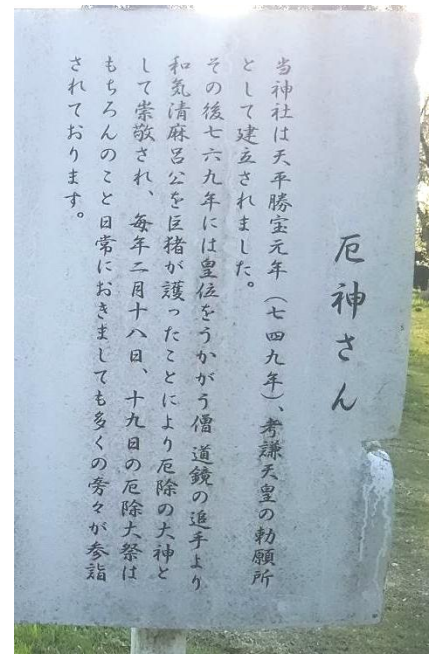 厄神さん
当神社は天平勝宝元年（七四九年）、考謙天皇の勅願所
として建立されました。
その後七六九年には皇位をうかがう僧 道鏡の追手より
和気清麻呂公を巨猪が護ったことにより厄除の大神と
して崇敬され、毎年二月十八日、十九日の厄除大祭は
もちろんのこと日常におきましても多くの方々が参詣
されております。